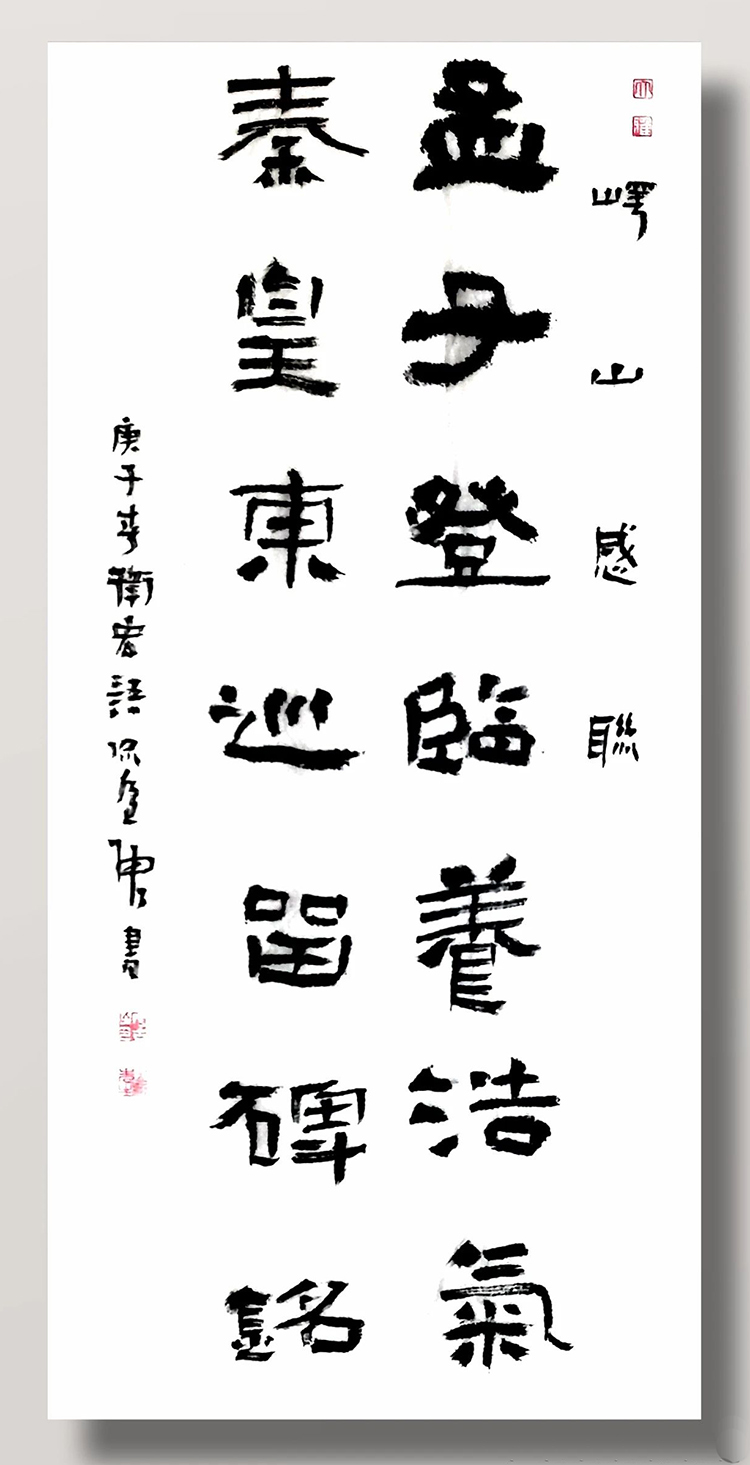 嶧山感聯
孟子登臨養浩氣
秦皇東巡留碑銘
庚子春衛宏語 書